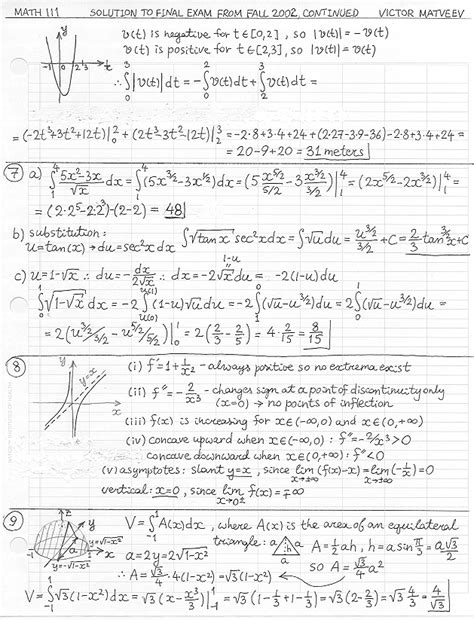 MATH 111 SOLUTION TO FINAL EXAM FROM FALL 2002, CONTINUED VICTOR MATVEEV
v(t) is negative for t∈[0,2], so |v(t)|=-v(t)
v(t) is positive for t∈[2,3], so |v(t)|=v(t)
∴ ∫₀³|v(t)|dt = -∫₀²v(t)dt + ∫₂³v(t)dt =
= (-2t³+3t²+12t)|₀² + (2t³-3t²-12t)|₂³ = -2·8+3·4+24+(2·27-3·9-36)-2·8+3·4+24=
= 20-9+20 = 31 meters
7 a) ∫₁⁴ (5x²-3x)/√x dx = ∫₁⁴(5x^{3/2}-3x^{1/2})dx = (5 x^{5/2}/(5/2) - 3 x^{3/2}/(3/2))|₁⁴ = (2x^{5/2}-2x^{3/2})|₁⁴ =
= (2·2⁵-2·2³)-(2-2) = 48
b) substitution:
u=tan(x) → du=sec²x dx ∫√tan x sec²x dx = ∫√u du = u^{3/2}/(3/2) + C = 2/3 tan^{3/2}x + C
1-u
c) u=1-√x ∴ du=-dx/(2√x) ∴ dx=-2√x du = -2(1-u)du
∫₀¹√(1-√x) dx = -2∫(1-u)√u du = -2∫₁⁰(√u-u^{3/2})du = 2∫₀¹(√u-u^{3/2})du =
= 2(u^{3/2}/(3/2) - u^{5/2}/(5/2))|₀¹ = 2(2/3 - 2/5) = 4·2/15 = 8/15
8 (i) f'=1+1/x² - always positive so no extrema exist
(ii) f''=-2/x³ - changes sign at a point of discontinuity only
(x=0) → no points of inflection
(iii) f(x) is increasing for x∈(-∞,0) and x∈(0,+∞)
(iv) concave upward when x∈(-∞,0): f''=-2/x³>0
concave downward when x∈(0,+∞): f''<0
(v) asymptotes: slant y=x, since lim x→±∞ (f(x)-x)=lim x→±∞ (-1/x)=0
vertical: x=0, since lim x→0± f(x)=∓∞
9 V=∫₋₁¹A(x)dx, where A(x) is the area of an equilateral
triangle: A=½ah, h=a sin π/3 = a√3/2
a=2y=2√(1-x²) so A=√3/4 a²
∴ A=√3/4·4(1-x²)=√3(1-x²)
V=∫₋₁¹√3(1-x²)dx=√3(x-x³/3)|₋₁¹=√3(1-1/3+1-1/3)=√3(2-2/3)=√3 4/3=4/√3